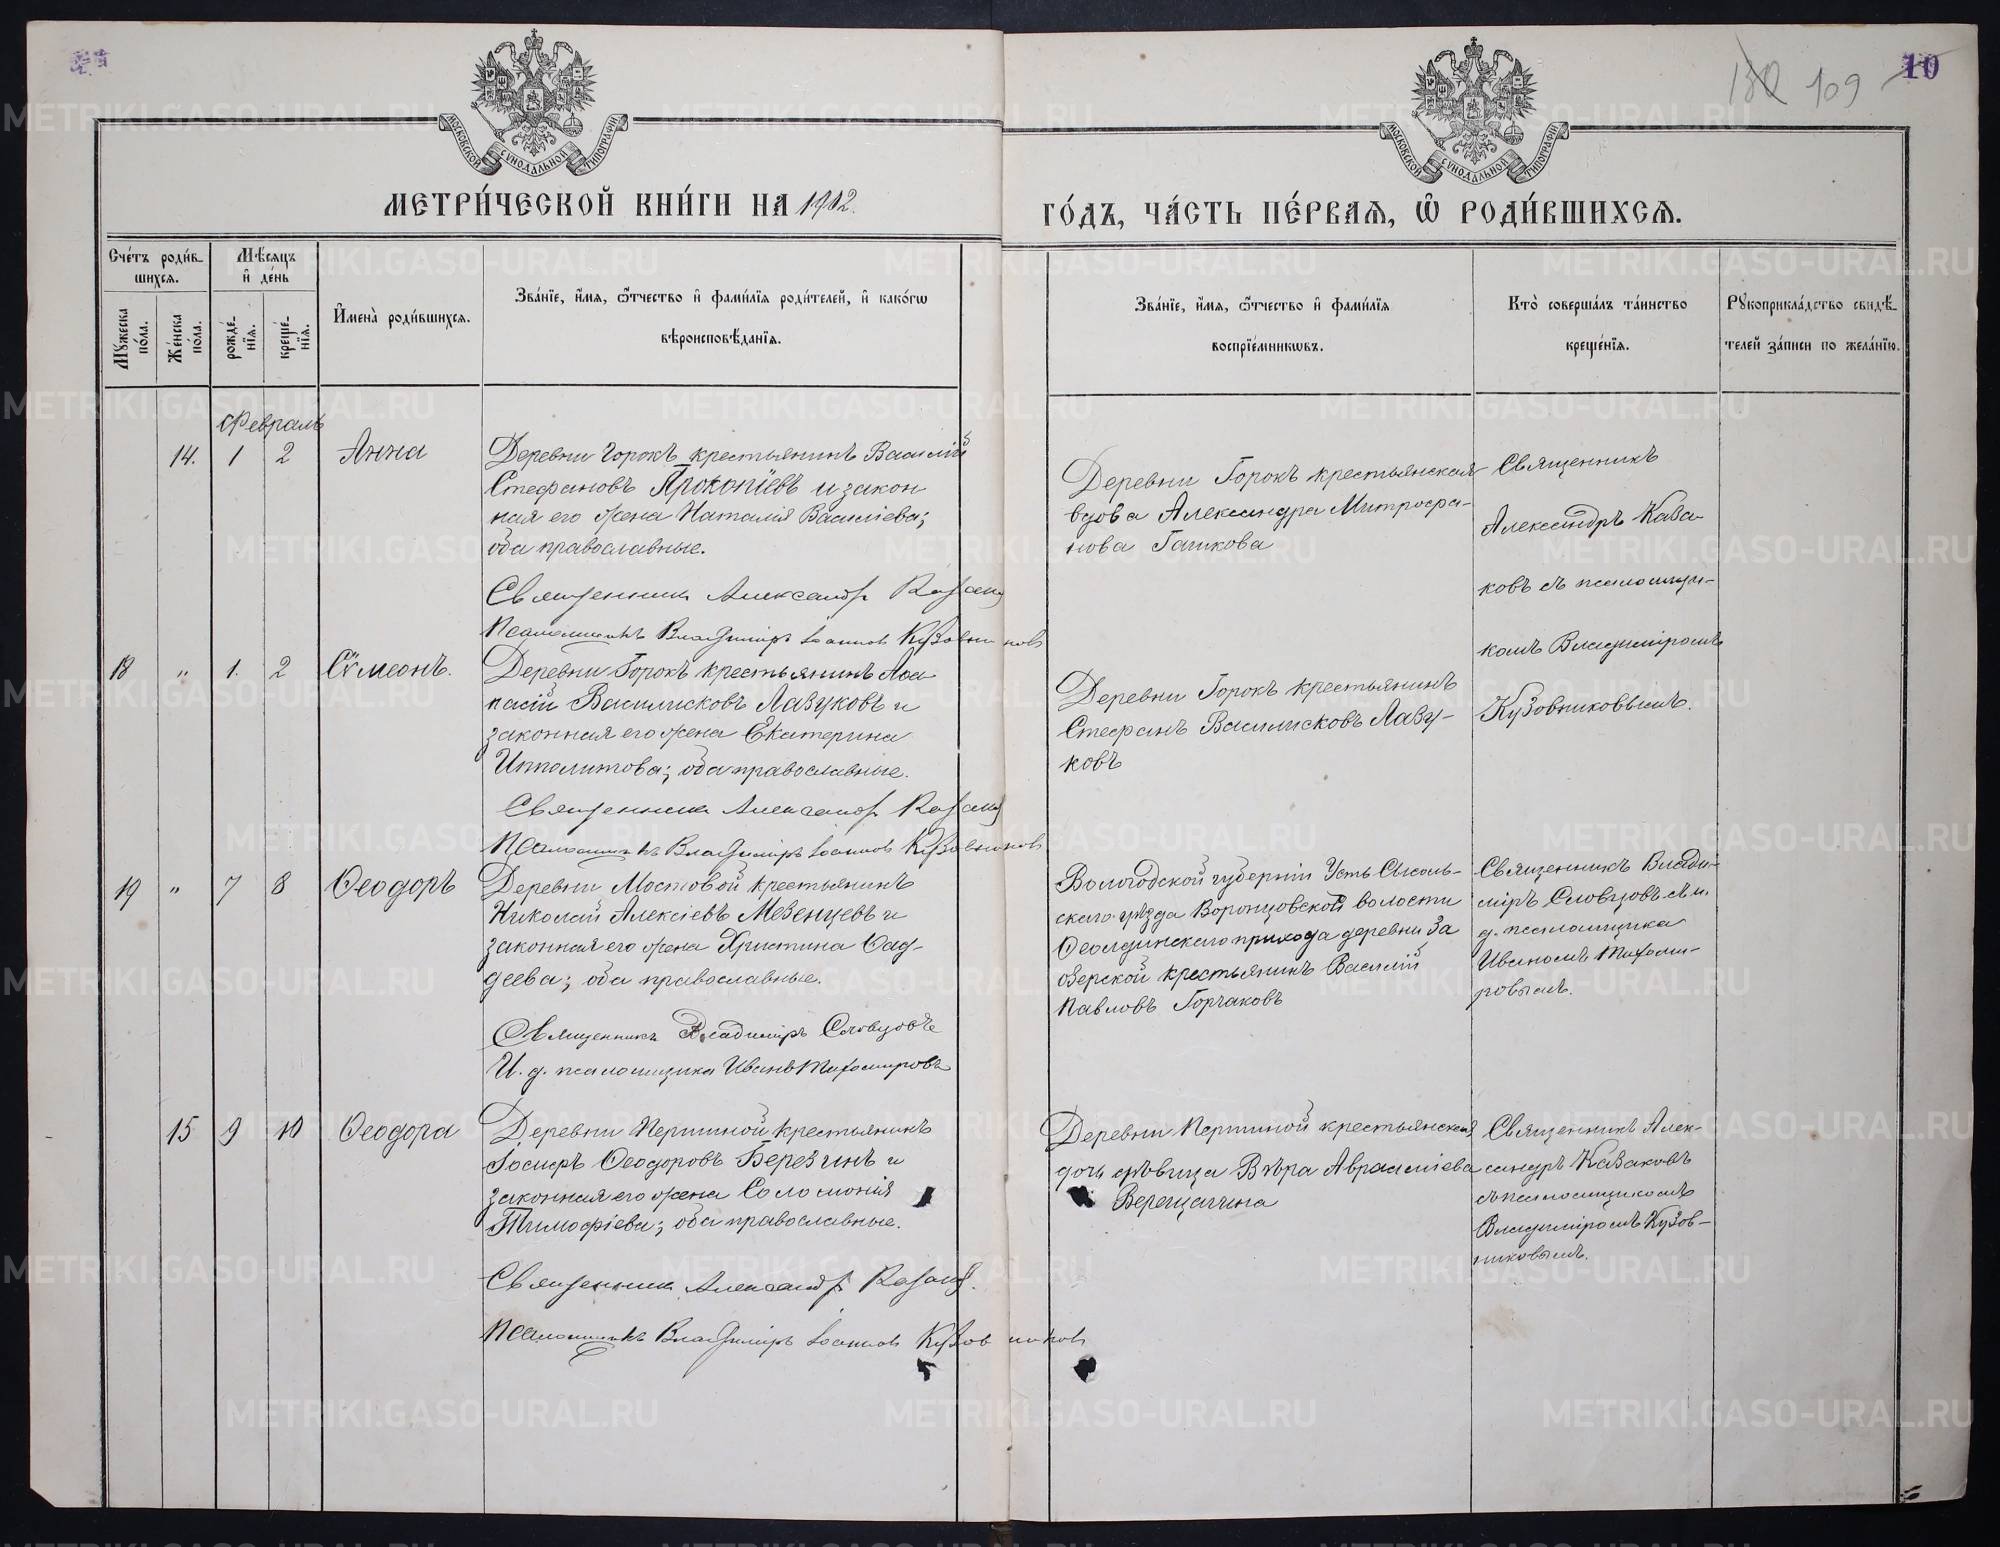 130 109 10
МОСКОВСКОЙ СУНОДАЛЬНОЙ ТИПОГРАФІИ
МОСКОВСКОЙ СУНОДАЛЬНОЙ ТИПОГРАФІИ
МЕТРИ́ЧЕСКОЙ КНИ́ГИ НА 1912.
ГО́ДЪ, ЧА́СТЬ ПЕ́РВАѦ, Ѽ РОДИ́ВШИХСѦ.
Сче́тъ роди́в-
шихсѧ.
Мꙋ́жеска по́ла.
Же́нска по́ла.
Мѣ́сѧцъ
и҆ де́нь
рожде́-
нїѧ.
креще́-
нїѧ.
И҆мена̀ роди́вшихсѧ.
Зва́нїе, и҆́мѧ, ѻ҆́тчество и҆ фами́лїѧ роди́телей, и҆ како́гѡ
вѣроисповѣ́данїѧ.
Зва́нїе, и҆́мѧ, ѻ҆́тчество и҆ фами́лїѧ
воспрїе́мникѡвъ.
Кто̀ соверша́лъ та́инство
креще́нїѧ.
Рꙋкоприкла́дство свидѣ́-
телей за́писи по жела́нїю.
Февраль
14. 1 2 Анна
Деревни Горокъ крестьянинъ Василій
Стефановъ Прокопіевъ и закон
ная его жена Наталія Василіева;
оба православные.
Священникъ Александр Казаков
Псаломщикъ Владиміръ Іоаннов Кузовников
Деревни Горокъ крестьянская
вдова Александра Митрофа-
нова Гачкова
Священникъ
Александръ Каза-
ковъ съ псаломщи-
комъ Владиміромъ
Кузовниковымъ.
18 " 1. 2 Сѵмеонъ.
Деревни Горокъ крестьянинъ Аѳа
насій Василисковъ Лазуковъ и
законная его жена Екатерина
Ипполитова; оба православные.
Священникъ Александр Казаков
Псаломщикъ Владиміръ Іоаннов Кузовников
Деревни Горокъ крестьянинъ
Стефанъ Василисковъ Лазу-
ковъ
19 " 7 8 Ѳеодоръ
Деревни Мостовой крестьянинъ
Николай Алексіевъ Мезенцевъ и
законная его жена Христина Ѳад-
деева; оба православные.
Священникъ Владиміръ Словцовъ
И. д. псаломщика Иванъ Тихомировъ
Вологодской губерніи Усть Сысоль-
скаго уѣзда Воронцовской волости
Ѳеолдинскаго прихода деревни За
озерской крестьянинъ Василій
Павловъ Горчаковъ
Священникъ Влади-
міръ Словцовъ съ и.
д. псаломщика
Иваномъ Тихоми-
ровымъ.
15 9 10 Ѳеодора
Деревни Першиной крестьянинъ
Іосифъ Ѳеодоровъ Березинъ и
законная его жена Соломонія
Тимофіева; оба православные.
Священникъ Александр Казаков.
Псаломщикъ Владиміръ Іоаннов Кузовников
Деревни Першиной крестьянская
дочь дѣвица Вѣра Авраамиіева
Верещагина
Священникъ Алек-
сандръ Казаковъ
съ псаломщикомъ
Владиміромъ Кузов-
никовымъ.
METRIKI.GASO-URAL.RU